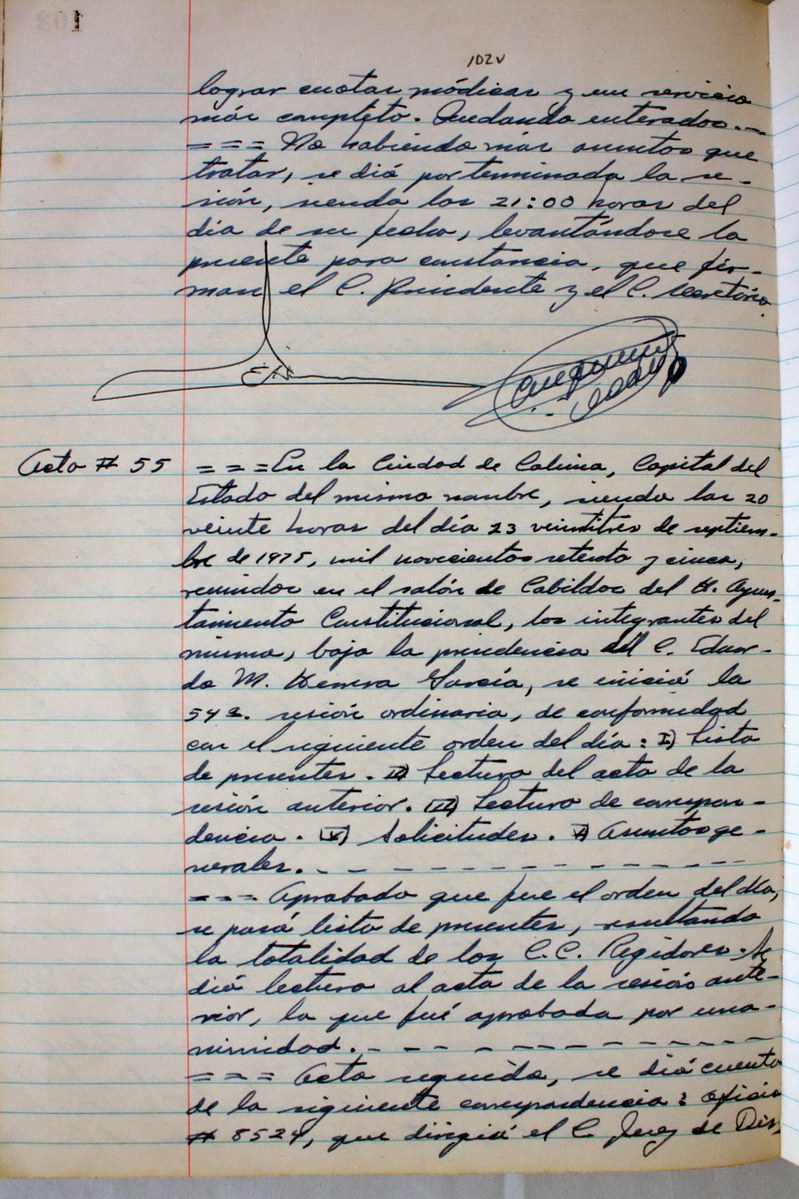 102v
lograr cuotas módicas y un servicio
más completo. Quedando enterados.—
=== No habiendo más asuntos que
tratar, se dió por terminada la se-
sión, siendo las 21:00 horas del
día de su fecha, levantándose la
presente para constancia, que fir-
man el C. Presidente y el C. Secretario.
Acta # 55 === En la Ciudad de Colima, Capital del
Estado del mismo nombre, siendo las 20
veinte horas del día 23 veintitres de septiem-
bre de 1975, mil novecientos setenta y cinco,
reunidos en el salón de Cabildos del H. Ayun-
tamiento Constitucional, los integrantes del
mismo, bajo la presidencia del C. Eduar-
do M. Herrera García, se inició la
54a. sesión ordinaria, de conformidad
con el siguiente orden del día: I) Lista
de presentes. II) Lectura del acta de la
sesión anterior. III) Lectura de correspon-
dencia. IV) Solicitudes. V) Asuntos ge-
nerales. - - - - - - - - - - - -
=== Aprobado que fue el orden del día,
se pasó lista de presentes, resultando
la totalidad de los C.C. Regidores. Se
dió lectura al acta de la sesión ante-
rior, la que fué aprobada por una-
nimidad. - - - - - - - - - - - -
=== Acto seguido, se dió cuenta
de la siguiente correspondencia: Oficio
# 8524, que dirigió el C. Juez de Dis-